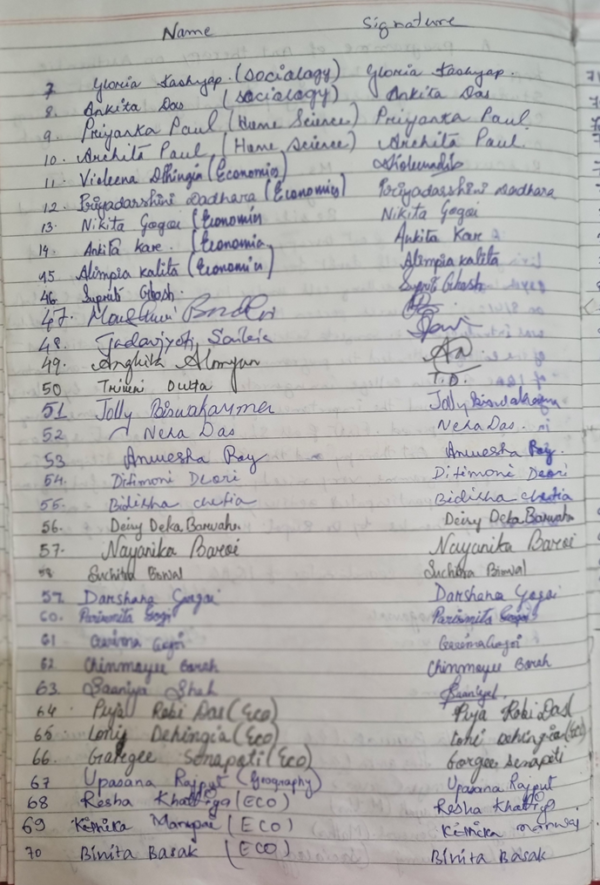 Name Signature
7 Gloria Kashyap. (Socialagy) Gloria Kashyap.
8. Ankita Das (Socialagy) Ankita Das
9. Priyanka Paul (Home Science) Priyanka Paul
10. Archita Paul (Home Science) Archita Paul
11. Violeena Dihingia (Economics)
12. Priyadarshini Dadhara (Economics) Priyadarshini Dadhara
13. Nikita Gogoi (Economics Nikita Gogoi
14. Ankita Kar. (Economics Ankita Kar
45 Alimpia Kalita (Economics) Alimpia Kalita
46 Suprit Ghosh. Suprit Ghosh
47.
48. Jadavjyoti Saikia
49. Angkita
50 Triveni Dutta T.D.
51 Jolly Biswakarmer Jolly
52 Neha Das Neha Das
53 Anwesha Ray Anwesha Ray.
54. Ditimoni Deori Ditimoni Deori
55. Bidisha Chetia Bidisha Chetia
56. Deisy Deka Barwah Deisy Deka Barwah
57. Nayanika Baroi Nayanika Baroi
58 Suchitra Suchitra
59 Darshana Gogoi Darshana Gogoi
60. Parismita Gogoi Parismita Gogoi
61 Gogoi Gogoi
62 Chinmayee Borah Chinmayee Borah
63. Saaniya Shah Saaniya
64 Puja Robi Das (Eco) Puja Robi Das
65 Loni Dehingia (Eco) Loni Dehingia (Eco)
66 Gargee Sonapati (Eco) Gargee Senapati
67 Upasana Rajput (Geography) Upasana Rajput
68 Resha (ECO) Resha
69 (ECO)
70 Binita Basak (ECO) Binita Basak